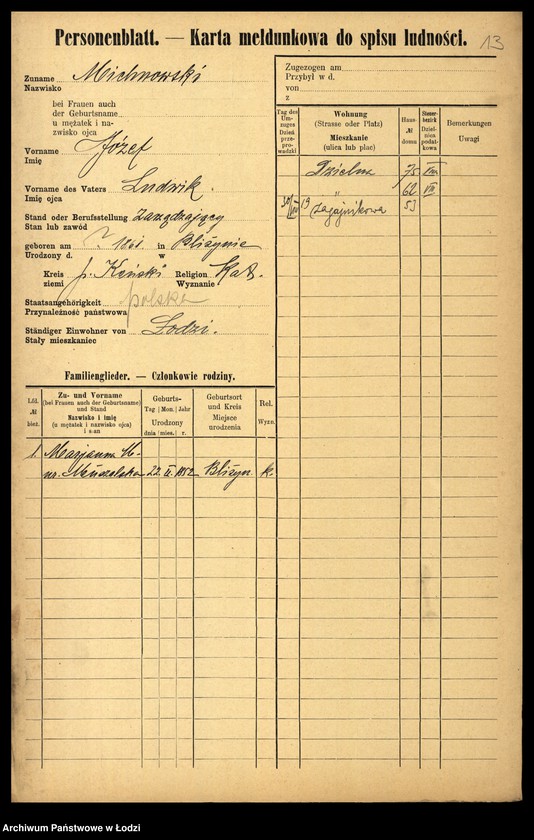 Personenblatt. — Karta meldunkowa do spisu ludności.
13
Zuname Michnowski
Nazwisko
bei Frauen auch
der Geburtsname
u mężatek i na-
zwisko ojca
Vorname Józef
Imię
Vorname des Vaters Ludwik.
Imię ojca
Stand oder Berufsstellung Zarządzający
Stan lub zawód
geboren am ? 1861 in Bliżynie
Urodzony d. w
Kreis p. Koński Religion Kat.
ziemi Wyznanie
Staatsangehörigkeit polska
Przynależność państwowa
Ständiger Einwohner von Łodzi.
Stały mieszkaniec
Familienglieder. — Członkowie rodziny.
Lfd. № bież.
Zu- und Vorname
(bei Frauen auch der Geburtsname)
und Stand
Nazwisko i imię
(u mężatek i nazwisko ojca)
i stan
Geburts-
Tag Mon. Jahr
Urodzony
dnia mies. r.
Geburtsort
und Kreis
Miejsce
urodzenia
Rel.
Wyzn.
1. Marjanna M-
22. II. 1852 Bliżyn k.
Zugezogen am
Przybył w d.
von
z
Tag des
Um-
zuges
Dzień
prze-
prowadzki
Wohnung
(Strasse oder Platz)
Mieszkanie
(ulica lub plac)
Haus-
№
domu
Steuer-
bezirk
Dziel-
nica
podat-
kowa
Bemerkungen
Uwagi
Dzielna 75 VIII
„ 62 VII
30/VIII 19 Zagajnikowa 53
Archiwum Państwowe w Łodzi